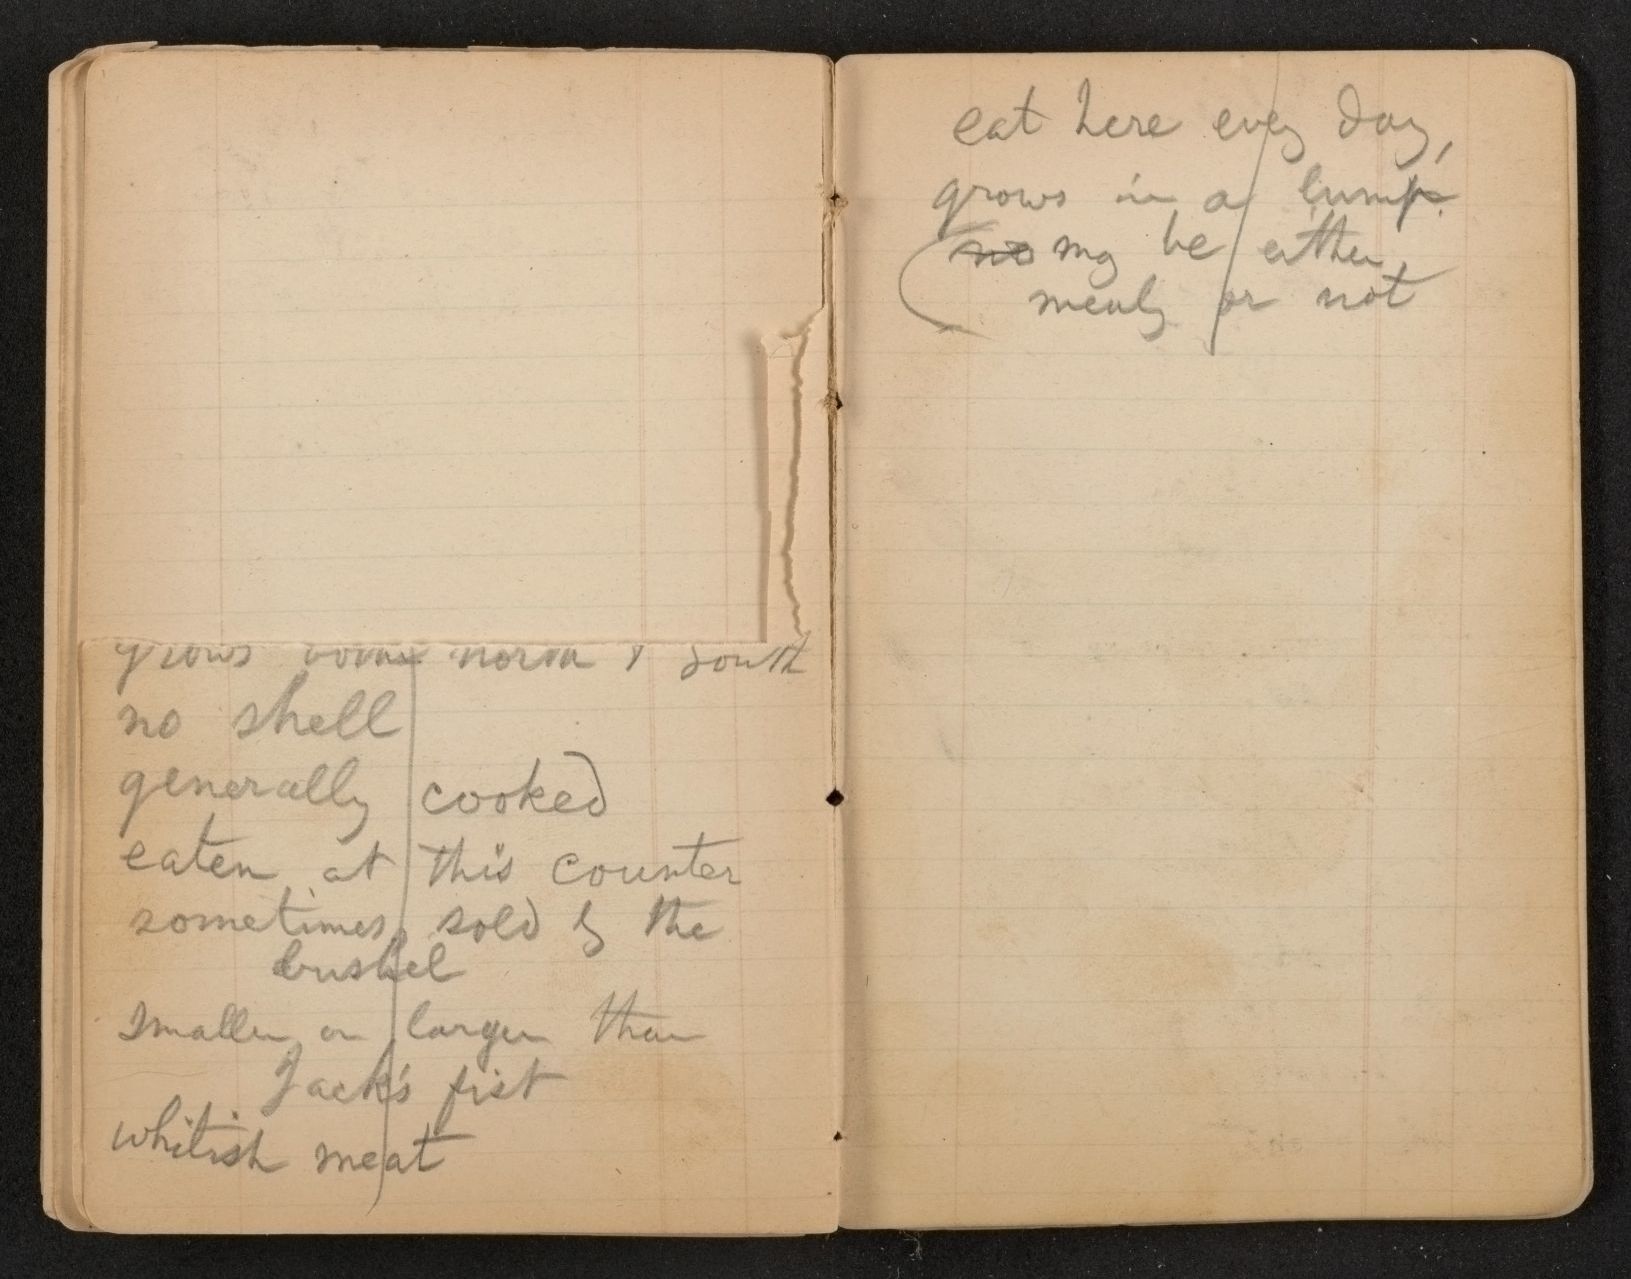 grows both north & south
no shell
generally cooked
eaten at this counter
sometimes sold by the
bushel
smaller or larger than
Jack's fist
whitish meat
eat here every day,
grows in a lump.
no my be either
mealy or not